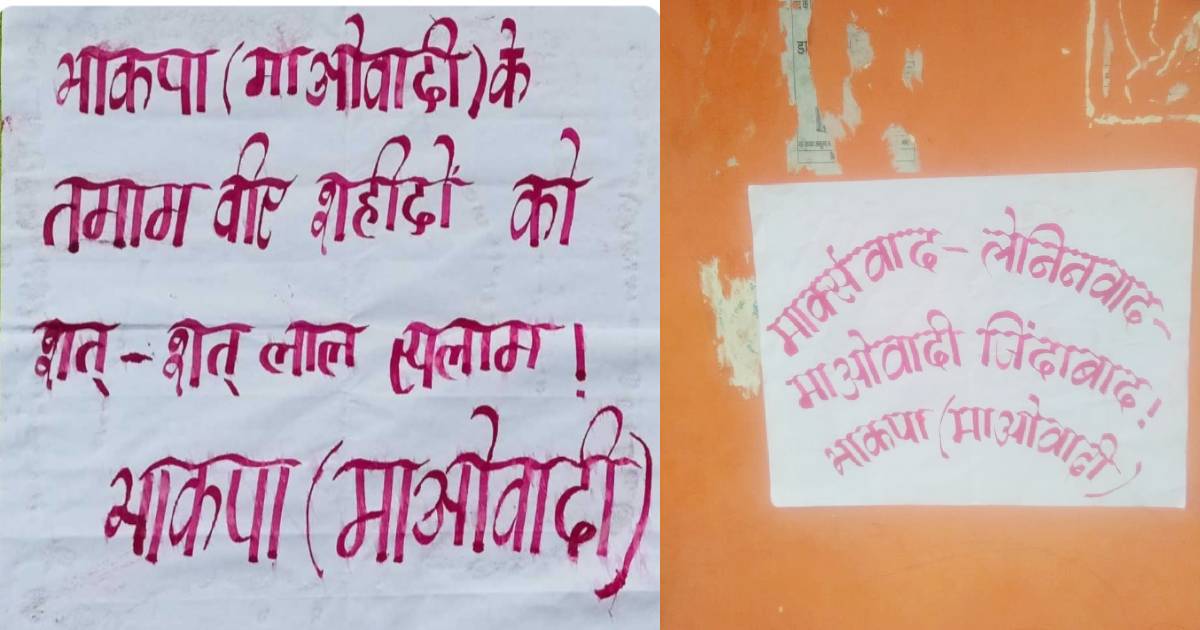 भाकपा (माओवादी) के
तमाम वीर शहीदों को
शत् - शत् लाल स्लाम !
भाकपा (माओवादी)
मार्क्सवाद - लेनिनवाद -
माओवादी जिंदाबाद !
भाकपा (माओवादी)